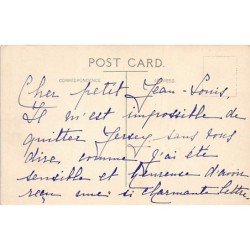 POST CARD.
CORRESPONDENCE
Cher petit Jean-Louis.
Il m'est impossible de
quitter Jersey sans vous
dire comme j'ai été
sensible et heureuse d'avoir
reçu une si charmante lettre